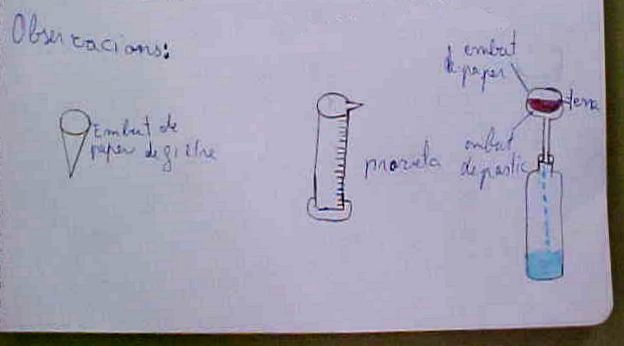 Observacions:
embut
de paper
terra
Embut de
paper de filtre
proveta
embut
de plastic